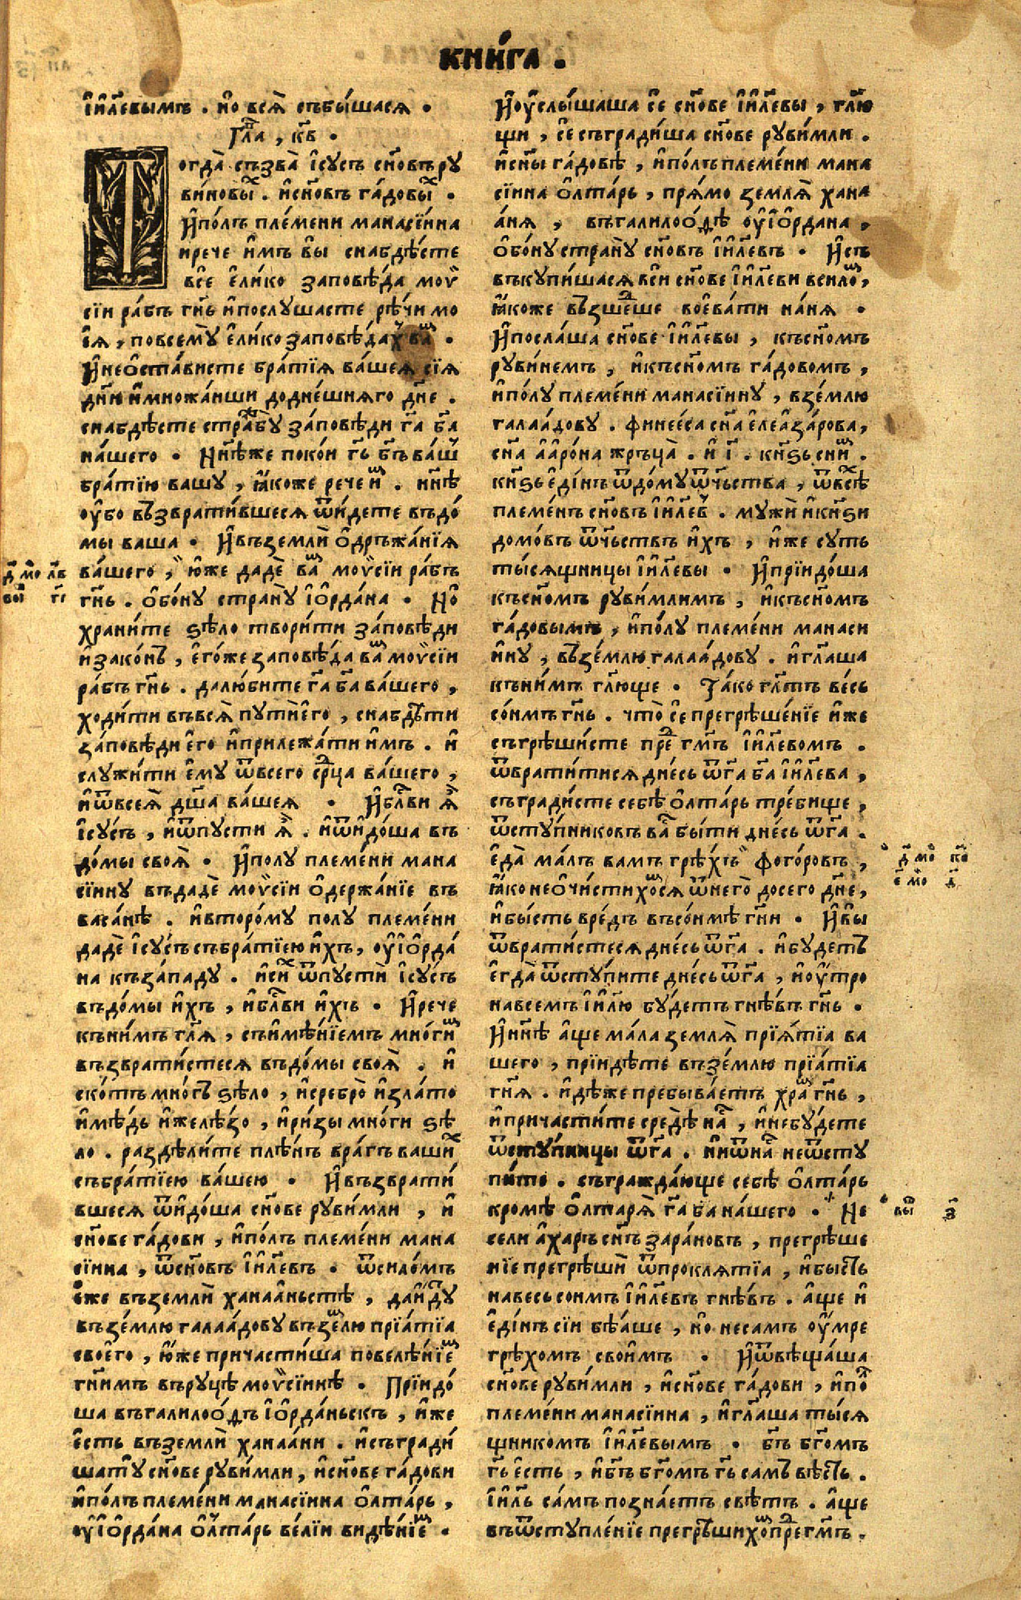 КНИ́ГА .
і҆и҃левымъ . но всѧ̀ събы́шасѧ .
Гла҃ , к҃в .
Тогда̀ съзва̀ і҆сусъ сн҃овъ ру
ви́новы̑х . и҆сн҃овъ га́довы̑х .
И҆по́лъ пле́мени манасі́инна
ирече и҆мъ вы̀ снабдѣ́сте
всѐ е҆ли́ко заповѣ́да моѵ̈
сіи ра́бъ гн҃ь и҆послушасте рѣ́чи мо
еѧ̀ , повсемꙋ̀ е҆ли́ко заповѣ́дах ва̑м .
И҆неоста́висте бра́тїѧ ва́шеѧ сїѧ̀
дн҃и и҆множа́иши додне́шнѧго дн҃е .
снабдѣ́сте стра́жбꙋ за́повѣди г҃а б҃а
на́шего . Нн҃ѣже поко́и г҃ь б҃ъ ва́ш
бра́тїю вашꙋ , ꙗ҆коже рече и҆м . ннѣ
оу҆́бо възврати́вшесѧ ѿи́дете въдо́
мы ваша . И҆въземлѝ ѻ҆држа́нїѧ
ва́шего , ю҆же дадѐ вам моѵ̈сіи ра́бъ
гн҃ь . ѻ҆бо́нꙋ странꙋ̀ і҆ѻ҆рда́на . Но
храни́те ѕѣло твори́ти за́повѣди
и҆зако́нъ , е҆го́же заповѣ́да вам моѵ̈сіи
ра́бъ гн҃ь . далю́бите г҃а б҃а ва́шего ,
ходи́ти въвсѧ̀ пꙋтѝего , снабдѣти
за́повѣди его и҆прилежа́ти и҆мъ . и҆
слꙋжи́ти емꙋ ѿвсего срⷣца ва́шего ,
и҆ѿвсеѧ̀ дш҃а ва́шеѧ . И҆бл҃ви ѧ҆̀
і҆сꙋсъ , и҆ѿпꙋсти ѧ҆̀ . и҆ѿидо́ша въ
до́мы своѧ̀ . И҆полꙋ пле́мени мана
сіинꙋ въдадѐ моѵ̈сіи ѻ҆держа́нїе въ
васа́нѣ . и҆второ́мꙋ полꙋ пле́мени
дадѐ і҆сꙋсъ събра́тїею и҆́хъ , оу҆і҆ѻ҆рда́
на къза́падꙋ . и҆си́х ѿпꙋстѝ і҆сꙋсъ
въдо́мы и҆́хъ , и҆бл҃ви и҆́хъ . И҆рече
къни́мъ гл҃ѧ , съимѣ́нїемъ мно́гим
възврати́стесѧ въдо́мы своѧ̀ . и҆
ско́тъ мно́гъ ѕѣло , и҆сребро̀ и҆зла́то
и҆мѣ́дь и҆желѣ́зо , и҆ри́зы мно́ги ѕѣ
ло . раздѣли́те плѣ́нъ вра́гъ ваши́х
събра́тїею ва́шею . И҆възврати́
вшесѧ ѿидо́ша сн҃ове рꙋви́мли , и҆
сн҃ове га́дови , и҆по́лъ пле́мени мана
сїина , ѿсн҃овъ і҆и҃левъ . ѿсило́мъ
е҆же въземлѝ ханаа́ньстѣ , да́и́дꙋт
въземлю галаа́довꙋ възе́лю прїа́тїа
своего , ю҆же причасти́ша повелѣ́нїем
гн҃имъ върꙋцѣ моѵ̈сі́инѣ . Прїидо́
ша въгалило́ѳъ і҆ѻ҆рда́ньскъ , и҆же
е҆сть въземлѝ ханаа́ни . и҆съгради́
шатꙋ̀ сн҃ове рꙋви́мли , и҆сн҃ове га́дови
и҆по́лъ пле́мени манасїинна ѻ҆лта́рь ,
оу҆і҆ѻ҆рда́на ѻ҆лта́рь ве́лїи видѣ́нїем .
И҆оу҆слы́шаша сн҃ове і҆и҃левы , гл҃ю
щи , сѐ съгради́ша сн҃ове рꙋви́мли .
и҆сн҃ы га́довѣ , и҆по́лъ пле́мени мана
сїинна ѻ҆лта́рь , прѧ́мо землѧ̀ хана
а́нѧ , въгалило́ѳѣ оу҆і҆ѻ҆рдана ,
ѻ҆бо́нꙋ странꙋ̀ сн҃овъ і҆и҃левъ . И҆съ
въкꙋпи́шасѧ вси сн҃ове і҆и҃леви всило́м ,
ꙗ҆коже възшеⷣше воева́ти на́нѧ .
И҆посла́ша сн҃ове і҆и҃левы , късн҃омъ
рꙋви́немъ , и҆късн҃омъ га́довомъ ,
и҆по́лꙋ пле́мени манасїинꙋ , взе́млю
галаа́довꙋ . финее́са сн҃а е҆леа҆за́рова ,
сн҃а а҆а҆ро́на жръца̀ . и҆ і҃ . кн҃ѕь сни́м .
кн҃ѕь е҆ди́нъ ѿдо́мꙋ ѿчьства , ѿвсѣ́х
пле́менъ сн҃овъ і҆и҃лев . мꙋжи́ и҆кн҃ѕи
домо́въ ѿчьствъ и҆́хъ , и҆же сꙋть
ты́сѧщницы і҆и҃левы . И҆прїидо́ша
късн҃омъ рꙋви́млимъ , и҆късн҃омъ
га́довымъ , и҆по́лꙋ пле́мени манаси
и́нꙋ , въземлю галаа́довꙋ . и҆гл҃аша
къни́мъ гл҃юще . Та́ко гл҃тъ весь
со́имъ гн҃ь . что̀ сѐ прегрѣше́нїе и҆же
съгрѣши́сте преⷣ гм҃ъ і҆и҃левомъ .
ѿврати́тисѧ дне́сь ѿг҃а б҃а і҆и҃лева ,
съгради́сте себѣ ѻ҆лта́рь тре́бище ,
ѿстꙋ́пникомъ вам бы́ти дне́сь ѿг҃а .
е҆да̀ ма́лъ вамъ грѣ́хъ фого́ровъ ,
ꙗ҆ко не ѻ҆чи́стихомсѧ ѿнего̀ досего дн҃е ,
и҆бы́сть вре́дъ въсо́имѣ гн҃и . И҆вы̀
ѿврати́стесѧ дне́сь ѿг҃а . и҆бꙋ́детъ
е҆гда̀ ѿстꙋ́пите дне́сь ѿг҃а , и҆оу҆́тро
навсемъ і҆и҃лю бꙋ́детъ гнѣ́въ гн҃ь .
И҆ннѣ а҆ще ма́ла землѧ̀ прїѧ́тїа ва
шего , прїидѣ́те въземлю прїа́тїа
гн҃ѧ . и҆дѣже пребыва́етъ храм гн҃ь ,
и҆причасти́те средѣ̀ нас , и҆небꙋ́дете
ѿстꙋ́пницы ѿг҃а . и҆и҆ѿнас неѿстꙋ
пи́те . съгражда́юще себѣ ѻ҆лта́рь
кромѣ ѻ҆лтарѧ̀ г҃а б҃а на́шего . Не
сели а҆ха́ръ сн҃ъ за́рановъ , прегрѣше
нїе прегрѣшѝ ѿпроклѧ́тїа , и҆бысть
навесь соимъ і҆и҃левъ гнѣ́въ . а҆ще и҆
е҆ди́нъ сіи бѣ́аше , но несамъ оу҆́мре
грѣ́хомъ свои́мъ . И҆ѿвѣща́ша
сн҃ове рꙋви́мли , и҆сн҃ове га́дови , и҆пол
пле́мени манасїинна , и҆гл҃аша тысѧ
щникомъ і҆и҃левымъ . б҃ъ бг҃омъ
г҃ь е҆сть , и҆б҃ъ бг҃омъ г҃ь самъ вѣсть .
і҆и҃ль са́мъ позна́етъ свѣ́тъ . а҆ще
въѿстꙋпле́нїе прегрѣшихом преⷣ гм҃ъ .
д҃ мо҃ л҃в
во҃і г҃і
д҃ мо҃
е҃ мо҃ д҃
з҃